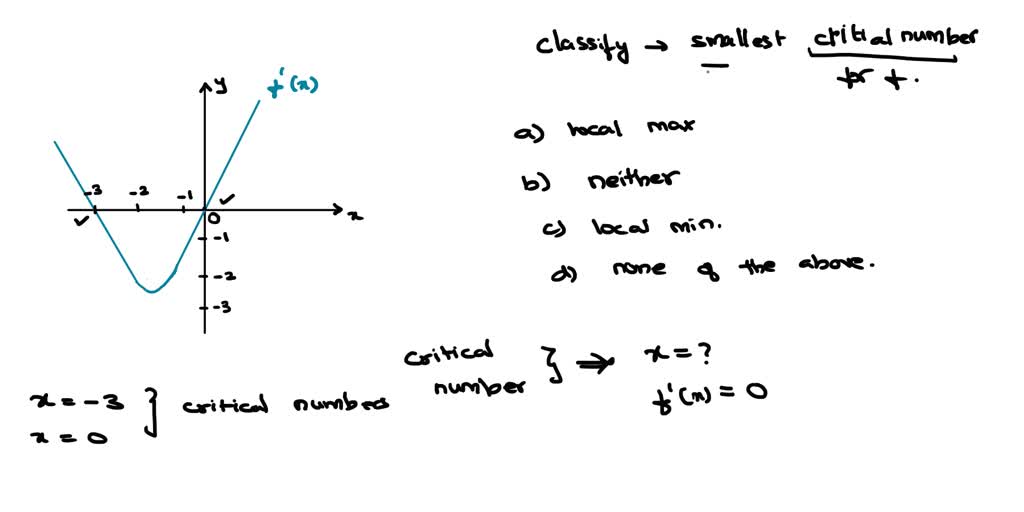 classify → smallest critial number
for f.
y
f'(x)
a) local max
b) neither
c) local min.
d) none of the above.
-3 -2 -1
0
x
-1
-2
-3
critical
number } ⇒ x = ?
f'(x) = 0
x = -3
x = 0 } critical numbers